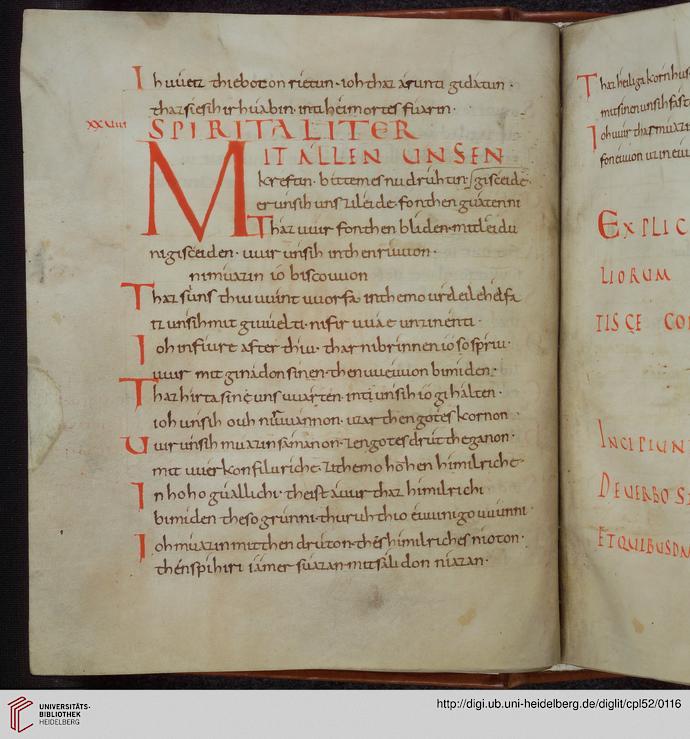 Ih uuerz thiebot on rietun · ioh thaz árunti gidátun ·
thaz sie sih irhuabin · inti heimortes fuarin ·
XXVIIII SPIRITALITER
MIT ALLEN UNSEN
kreftin · bittemes nu druhtin · gisceide
er unsih uns zi leide · fon then guaten ni
Thaz uuir fon then bliden · mit leidu
ni gisceiden · uuir unsih in then riuuon ·
ni muazin io biscouuon
Thaz súns thiu uuint uuorfa · in themo urdeile hélfa
iz unsih mit giuuelti · ni fir uuáe unz in enti ·
Ioh in fiure after thiu · thar ni brinnen io so spriu ·
uuir mit ginadon sinen · then uueuuon bimiden ·
Thaz hirta sine uns uuarten · inti unsih io gihálten ·
ioh unsih ouh ni uuánnon · uzar then gotes kornon
Uuir unsih muazin sámanon · zen gotes drut theganon ·
mit uuerkon filu riche · zi themo hóhen himilriche
In hoho guallichi · theist áuur thaz himilrichi
bimiden theso grunni · thuruh thio éuuinigo uuunni
Ioh muazin mit then drúton · thés himilriches nioton ·
then spihiri iámer súazan · mit sálidon niazan ·
Thaz heiliga kornhus
mit sinen unsih fast
Ioh uuir thar muazin
fon euuon unz in euu
EXPLIC
LIORUM
TIS CE CO
INCIPIUN
DE VERBO S
ET QUIBUSDA
UNIVERSITÄTS-
BIBLIOTHEK
HEIDELBERG
http://digi.ub.uni-heidelberg.de/diglit/cpl52/0116